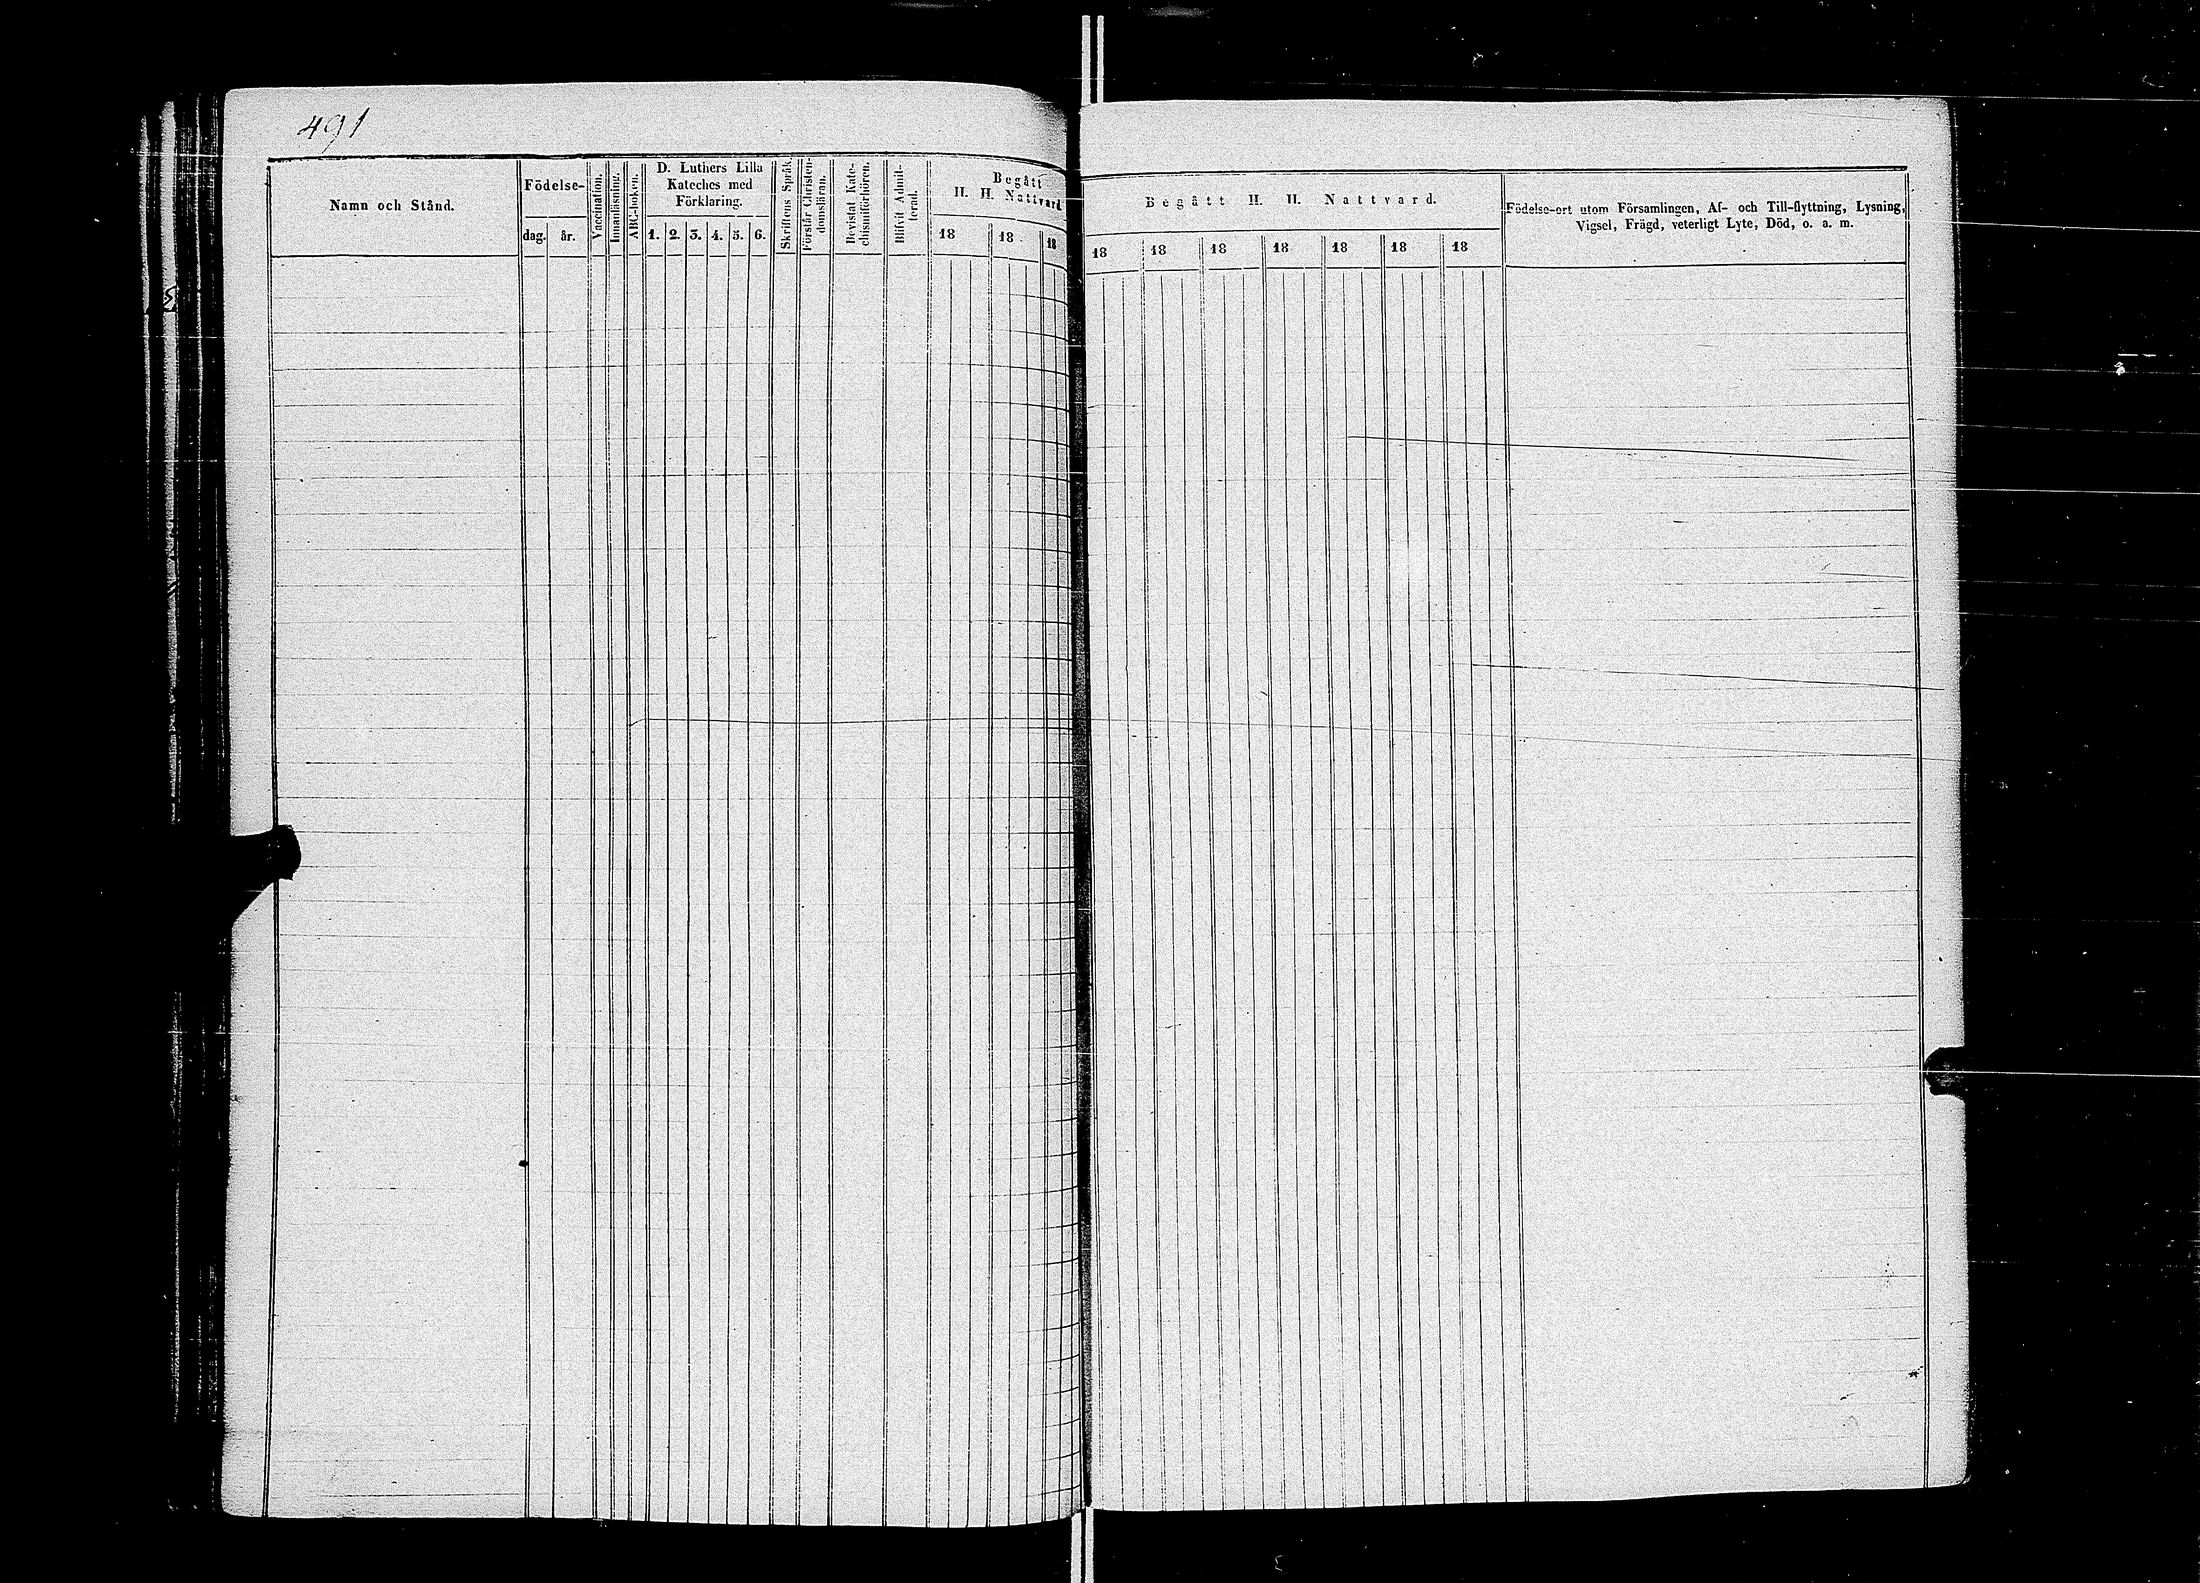 491
Namn och Stånd.
Födelse-
dag.
år.
Vaccination.
Innanläsning.
ABC-boken.
D. Luthers Lilla
Kateches med
Förklaring.
1. 2. 3. 4. 5. 6.
Skriftens Språk.
Förstår Christen-
domsläran.
Bevistat Kate-
chismiförhören.
Blifvit Admit-
terad.
Begått
H. H. Nattvard.
18 18 18
Begått H. H. Nattvard.
18 18 18 18 18 18 18
Födelse-ort utom Församlingen, Af- och Till-flyttning, Lysning,
Vigsel, Frägd, veterligt Lyte, Död, o. a. m.